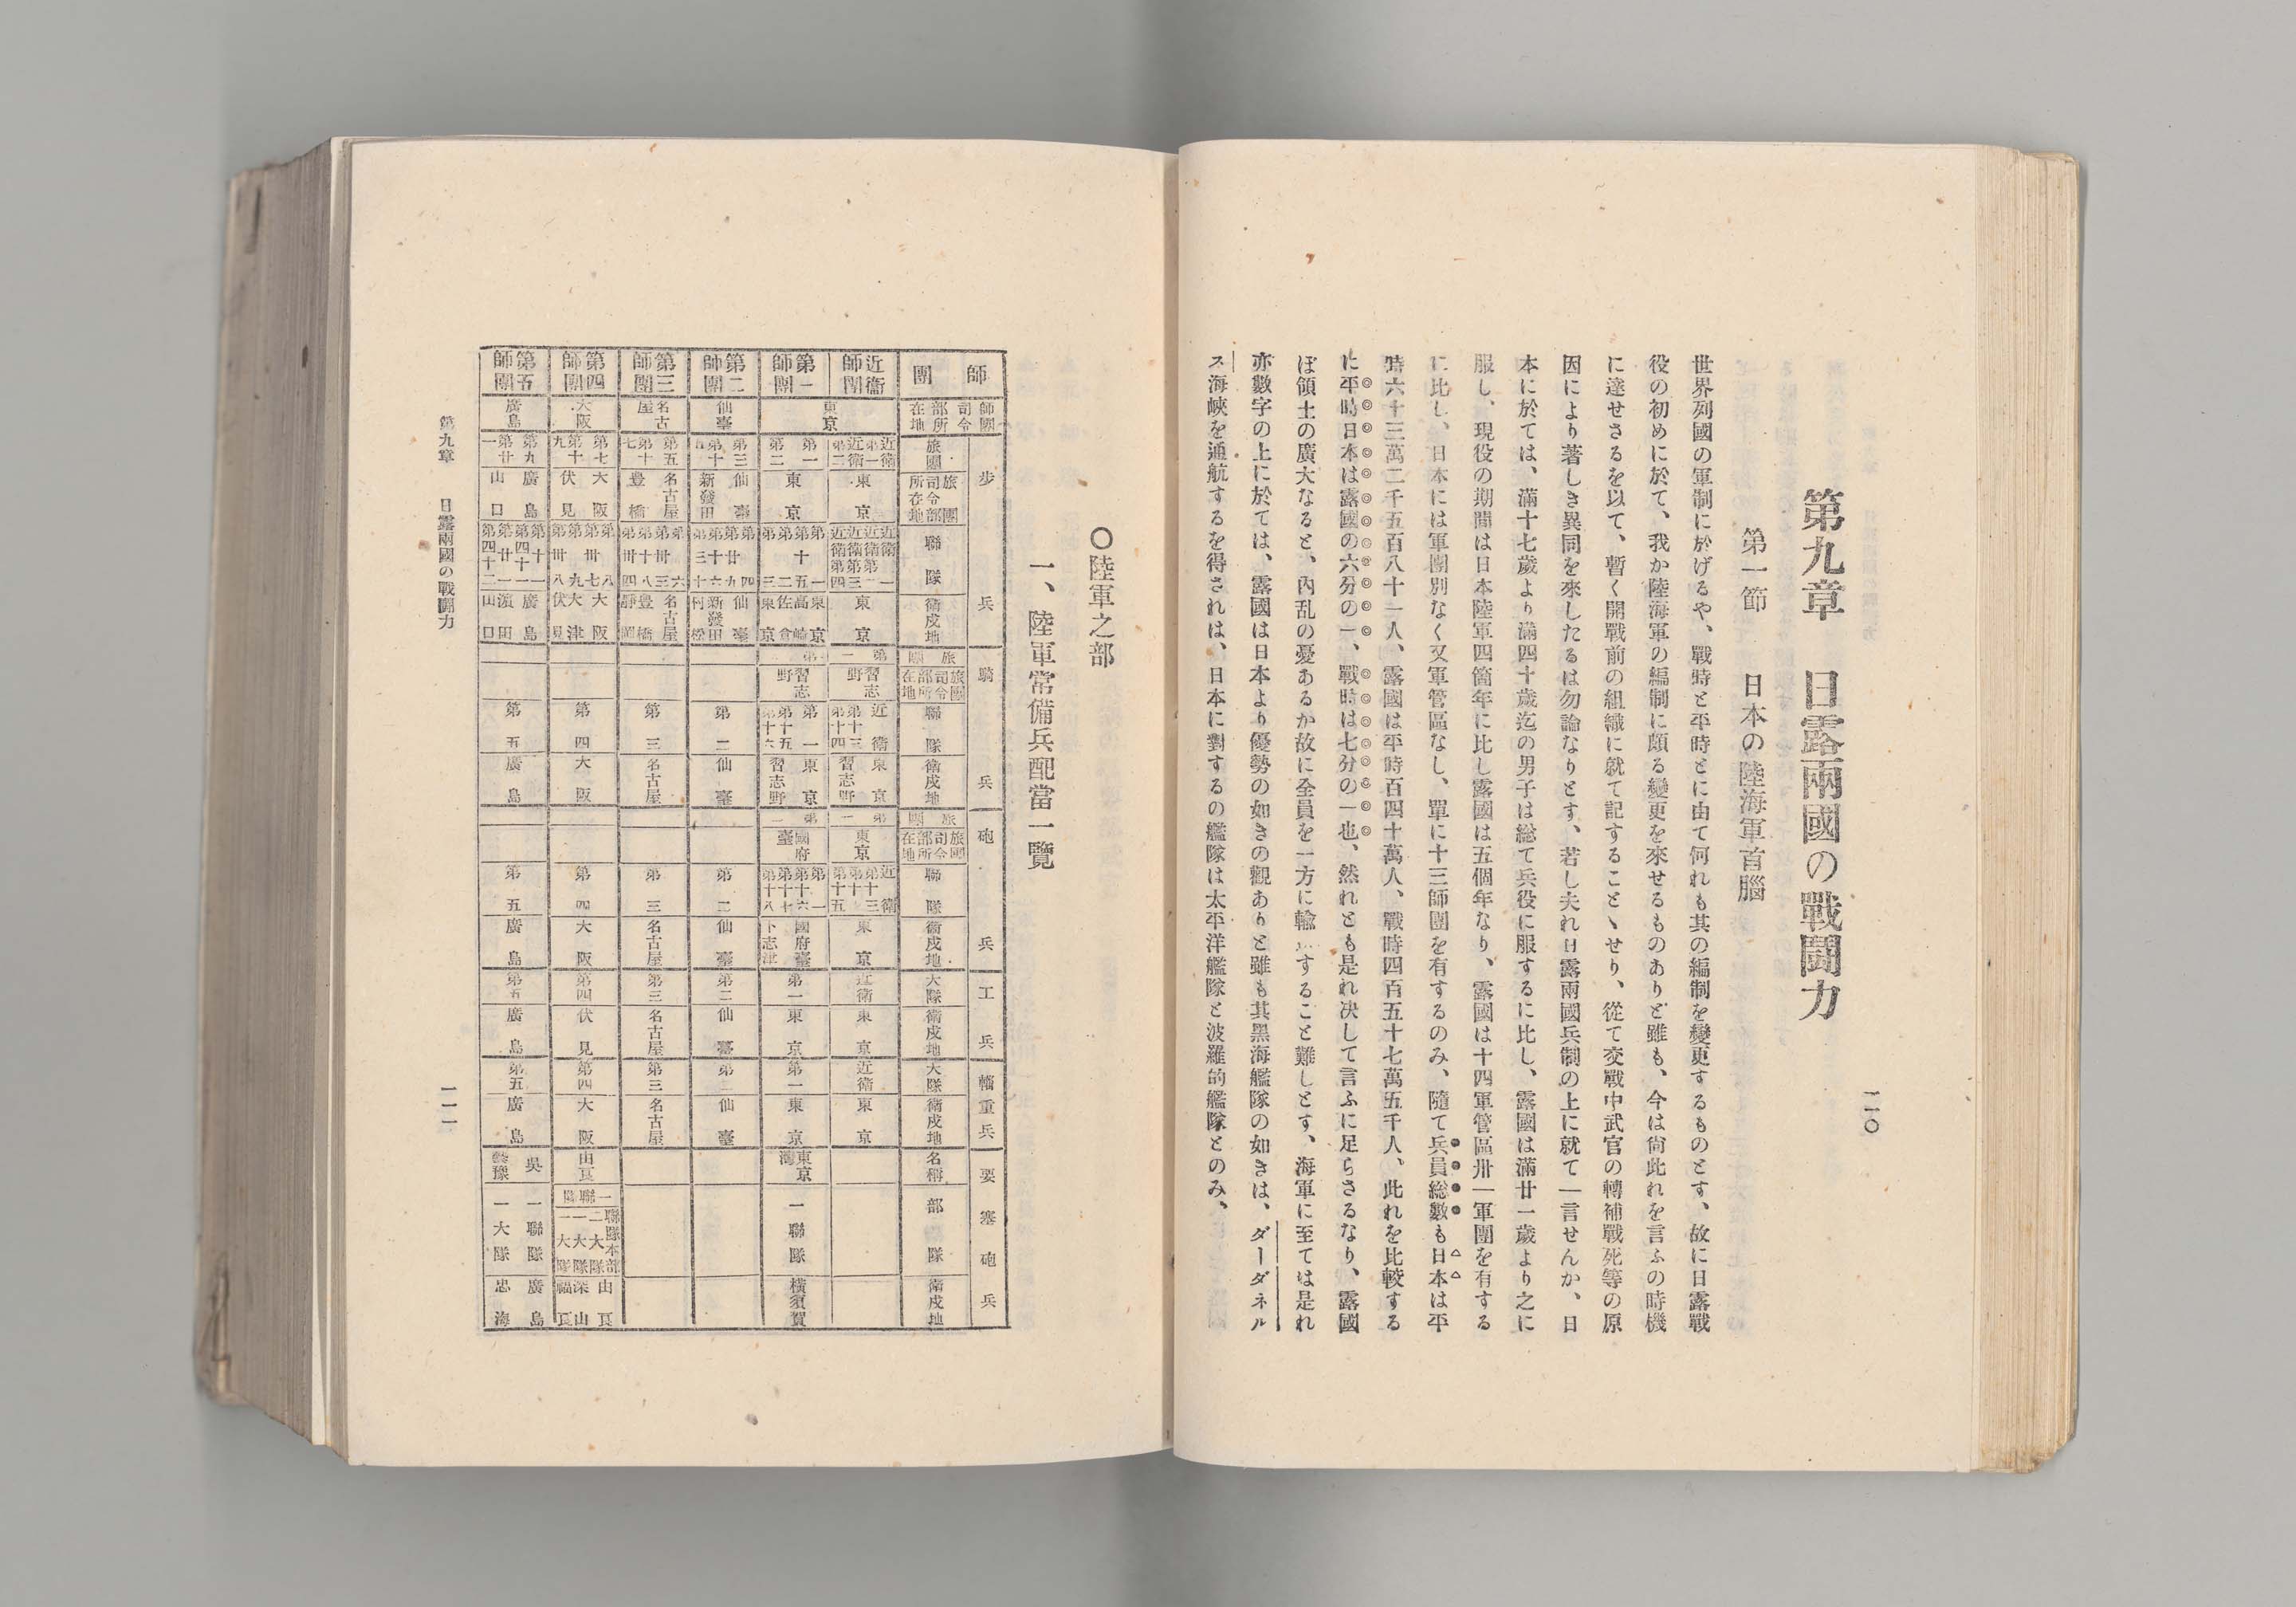 二一〇
第九章　日露兩國の戰鬪力
第一節　日本の陸海軍首腦
世界列國の軍制に於げるや、戰時と平時とに由て何れも其の編制を變更するものとす、故に日露戰
役の初めに於て、我か陸海軍の編制に頗る變更を來せるものありと雖も、今は尙此れを言ふの時機
に達せさるを以て、暫く開戰前の組織に就て記することゝせり、從て交戰中武官の轉補戰死等の原
因により著しき異同を來したるは勿論なりとす、若し夫れ日露兩國兵制の上に就て一言せんか、日
本に於ては、滿十七歲より滿四十歲迄の男子は総て兵役に服するに比し、露國は滿廿一歲より之に
服し、現役の期間は日本陸軍四箇年に比し露國は五個年なり、露國は十四軍管區卅一軍團を有する
に比し、日本には軍團別なく又軍管區なし、單に十三師團を有するのみ、隨て兵員総數も日本は平
時六十三萬二千五百八十一人、露國は平時百四十萬人、戰時四百五十七萬五千人、此れを比較する
に平時日本は露國の六分の一、戰時は七分の一也、然れとも是れ决して言ふに足らさるなり、露國
ぼ領土の廣大なると、內乱の憂あるか故に全員を一方に輸すること難しとす、海軍に至ては是れ
亦數字の上に於ては、露國は日本より優勢の如きの觀ありと雖も其黑海艦隊の如きは、ダーダネル
ス海峽を通航するを得されは、日本に對するの艦隊は太平洋艦隊と波羅的艦隊とのみ、
〇陸軍之部
一、陸軍常備兵配當一覽
師團　師團司令部所在地　步兵　旅團　旅團司令部所在地　聯隊　衞戍地　騎兵　旅團　旅團司令部所在地　聯隊　衞戍地　砲兵　旅團　旅團司令部所在地　聯隊　衞戍地　工兵　大隊　衞戍地　輜重兵　大隊　衞戍地　要塞砲兵　名稱　部隊　衞戍地
近衞師團　東京　近衞第一　近衞第二　東京　近衞第一　近衞第二　近衞第三　近衞第四　東京　第一　習志野　近衞　第十三　第十四　東京　習志野　第一　東京　近衞　第十三　第十五　東京　近衞　東京　近衞　東京
第一師團　第一　第二　東京　第一　第十五　第二　第三　東京　高崎　佐倉　東京　第二　習志野　第一　第十五　第十六　東京　習志野　第二　國府臺　第一　第十六　第十七　第十八　國府臺　下志津　第一　東京　第一　東京　東京灣　一聯隊　橫須賀
第二師團　仙臺　第三　第十五　仙臺　新發田　第四　第廿九　第十六　第三十　仙臺　新發田　村松　第二　仙臺　第二　仙臺　第二　仙臺　第二　仙臺
第三師團　名古屋　第五　第十七　名古屋　豊橋　第六　第卅三　第十八　第卅四　名古屋　豊橋　靜岡　第三　名古屋　第三　名古屋　第三　名古屋　第三　名古屋
第四師團　大阪　第七　第十九　大阪　伏見　第八　第卅七　第九　第卅八　大阪　大津　伏見　第四　大阪　第四　大阪　第四　伏見　第四　大阪　由良　一聯隊　聯隊本部　二大隊　一大隊　一大隊　由良　深山　福良
第五師團　廣島　第九　第廿一　廣島　山口　第十一　第四十一　第廿一　第四十二　廣島　濱田　山口　第五　廣島　第五　廣島　第五　廣島　第五　廣島　吳　藝豫　一聯隊　一大隊　廣島　忠海
第九章　日露兩國の戰鬪力
二一一